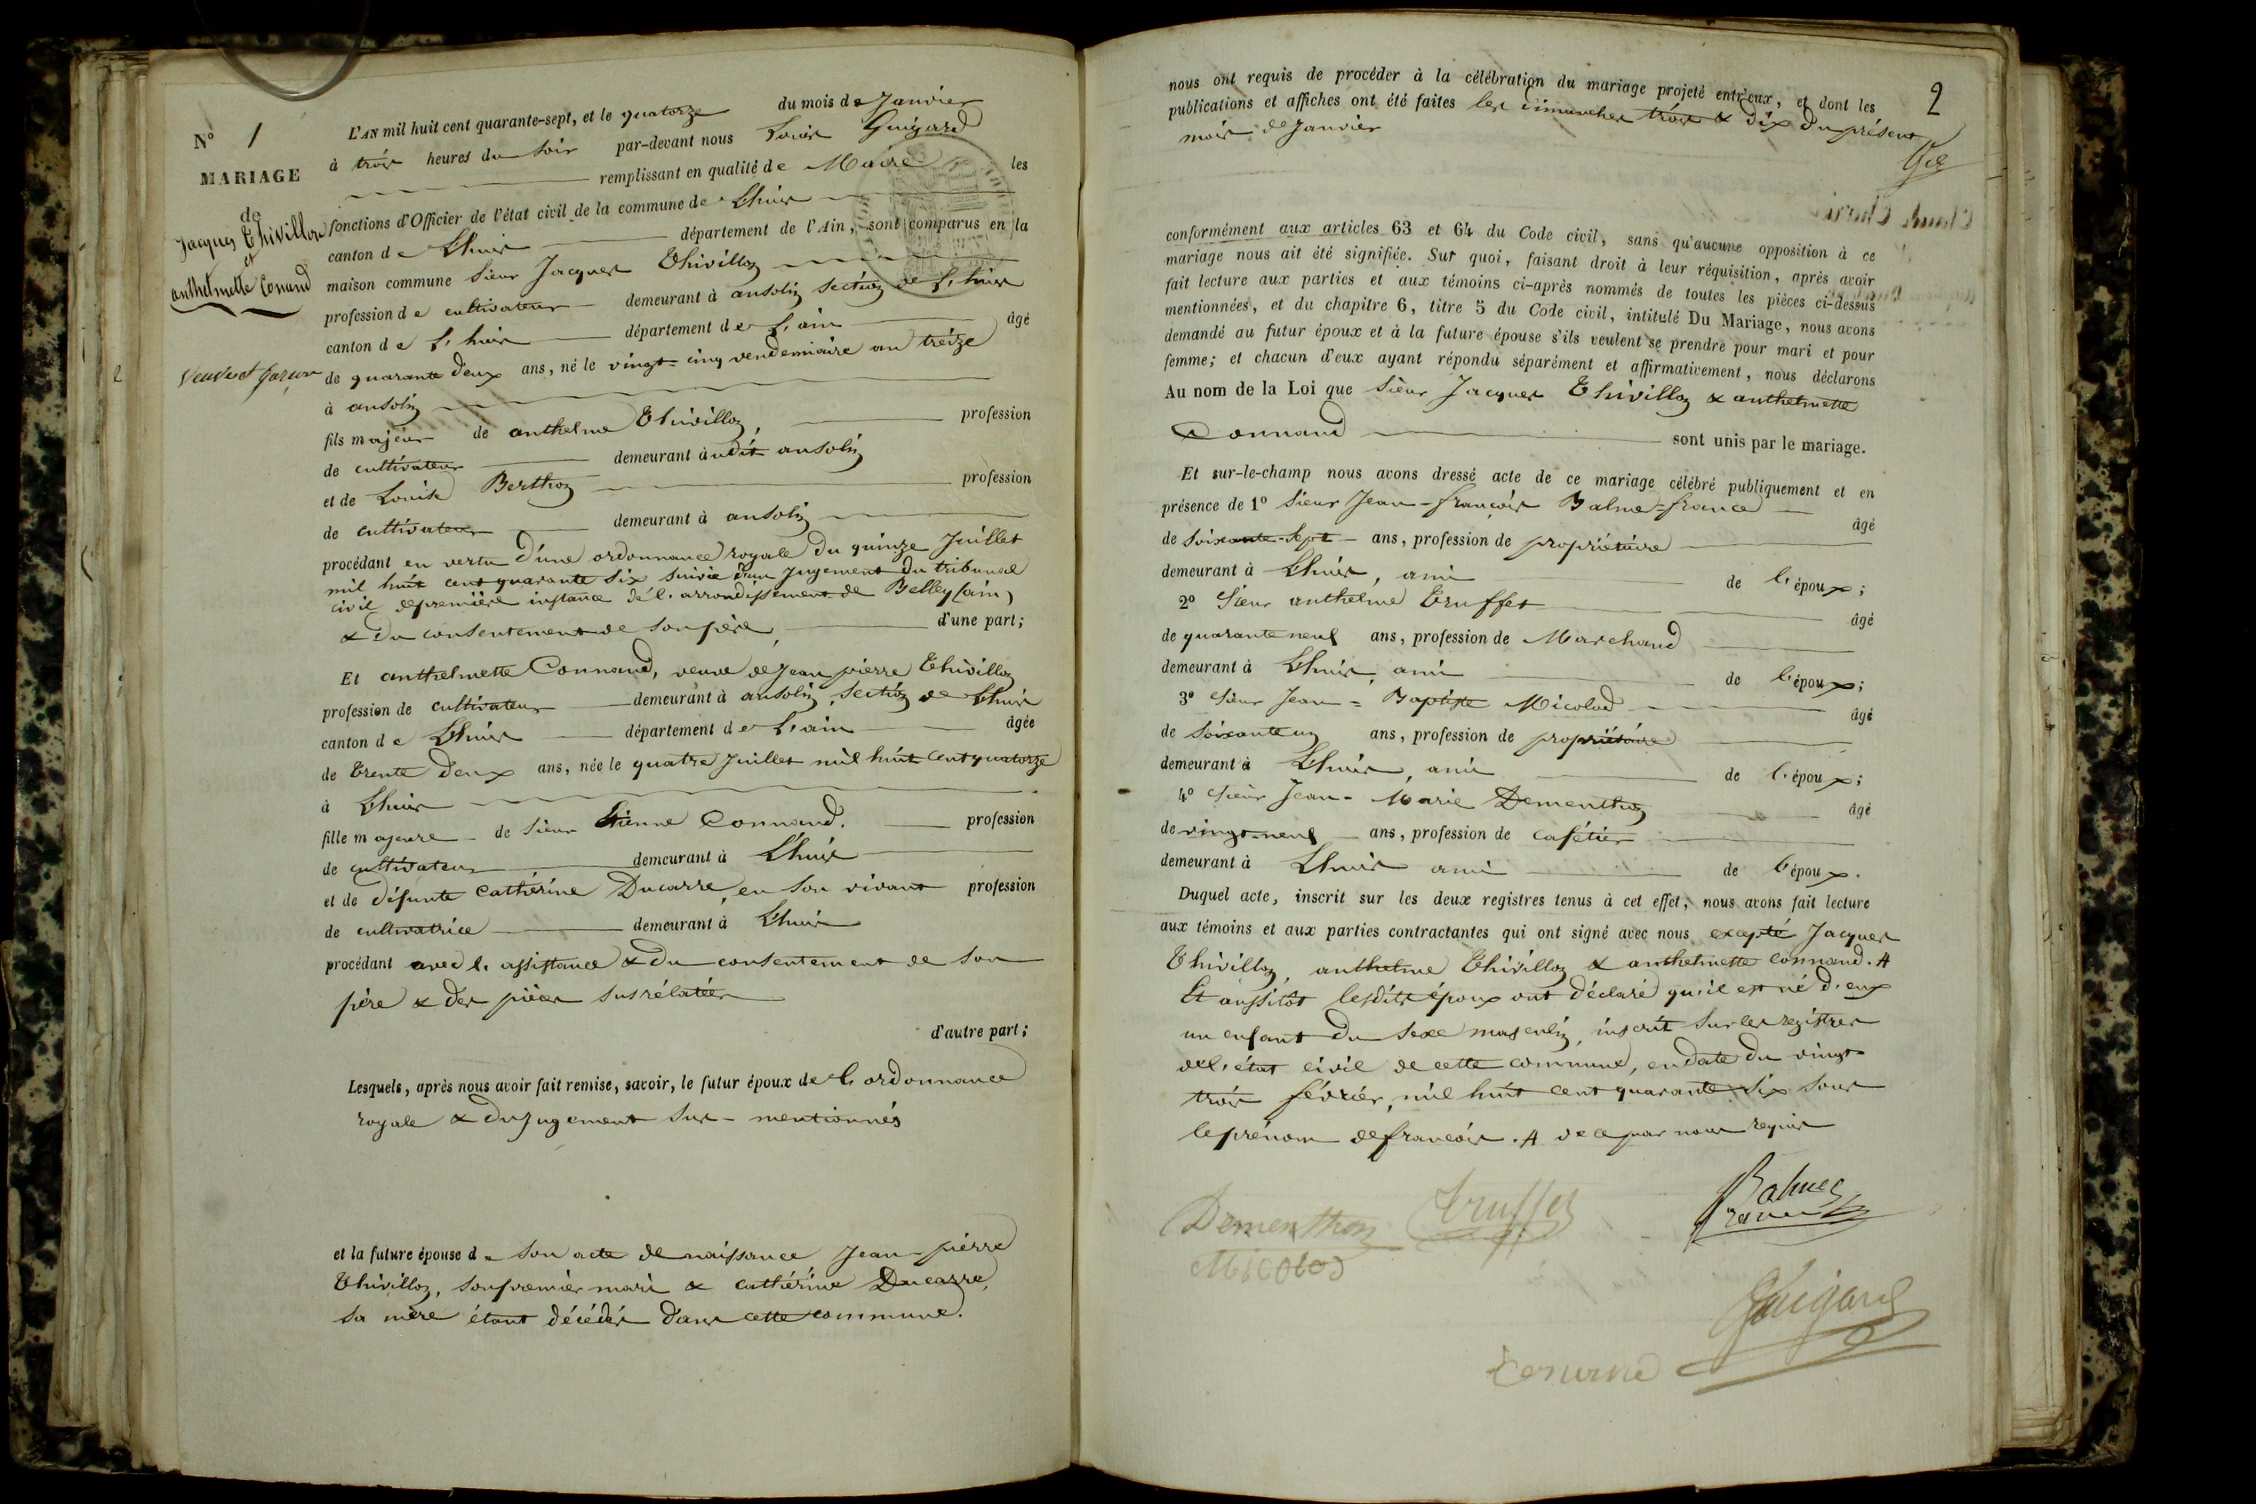 N° 1
MARIAGE
de
Jacques Thivillon
et
anthelmette Conand
Veuve et garçon
L'AN mil huit cent quarante-sept, et le quatorze du mois de Janvier
à trois heures du soir par-devant nous Louis Guigard
remplissant en qualité de Maire les
fonctions d'Officier de l'état civil de la commune de Lhuis
canton de Lhuis département de l'Ain, sont comparus en la
maison commune Sieur Jacques Thivillon
profession de cultivateur demeurant à ansolin section de Lhuis
canton de Lhuis département de L'ain âgé
de quarante deux ans, né le vingt-cinq vendemiaire an treize
à ansolin
fils majeur de anthelme Thivillon, profession
de cultivateur demeurant à udit ansolin
et de Louise Berthon profession
de cultivateur demeurant à ansolin
procédant en vertu d'une ordonnance royale du quinze Juillet
mil huit cent quarante six suivie d'un Jugement du tribunal
civil de première instance de l'arrondissement de Belley (ain)
& du consentement de son père, d'une part;
Et anthelmette Connand, veuve de Jean pierre Thivillon
profession de cultivateur demeurant à ansolin, section de Lhuis
canton de Lhuis département de L'ain âgée
de trente deux ans, née le quatre Juillet mil huit cent quatorze
à Lhuis
fille majeure de Sieur Etienne Connand. profession
de cultivateur demeurant à Lhuis
et de défunte Cathérine Ducarre, en son vivant profession
de cultivatrice demeurant à Lhuis
procédant avec l'assistance & du consentement de son
père & des pièces susrélatées
d'autre part;
Lesquels, après nous avoir fait remise, savoir, le futur époux de l'ordonnance
royale & du jugement sus-mentionnés
et la future épouse de son acte de naissance Jean-pièrre
Thivillon, son premier mari & Cathérine Ducarre,
sa mère étant décédés dans cette commune.
2
nous ont requis de procéder à la célébration du mariage projeté entr'eux, et dont les
publications et affiches ont été faites les dimanches trois & dix du présent
mois de Janvier
conformément aux articles 63 et 64 du Code civil, sans qu'aucune opposition à ce
mariage nous ait été signifiée. Sur quoi, faisant droit à leur réquisition, après avoir
fait lecture aux parties et aux témoins ci-après nommés de toutes les pièces ci-dessus
mentionnées, et du chapitre 6, titre 5 du Code civil, intitulé Du Mariage, nous avons
demandé au futur époux et à la future épouse s'ils veulent se prendre pour mari et pour
femme; et chacun d'eux ayant répondu séparément et affirmativement, nous déclarons
Au nom de la Loi que Sieur Jacques Thivillon & anthelmette
Connand sont unis par le mariage.
Et sur-le-champ nous avons dressé acte de ce mariage célébré publiquement et en
présence de 1° Sieur Jean-françois Balme-france âgé
de soixante-sept ans, profession de propriétaire
demeurant à Lhuis, ami de l'époux;
2° Sieur anthelme Truffet âgé
de quarante neuf ans, profession de Marchand
demeurant à Lhuis, ami de l'époux;
3° Sieur Jean-Baptiste Micolod âgé
de soixante un ans, profession de propriétaire
demeurant à Lhuis, ami de l'époux;
4° Sieur Jean-Marie Dementhon âgé
de vingt-neuf ans, profession de cafétier
demeurant à Lhuis ami de l'époux.
Duquel acte, inscrit sur les deux registres tenus à cet effet, nous avons fait lecture
aux témoins et aux parties contractantes qui ont signé avec nous excepté Jacques
Thivillon, anthelme Thivillon & anthelmette Connand. #
Et aussitôt lesdits époux ont déclaré qu'il est né d'eux
un enfant du sexe masculin, inscrit sur les registres
de l'état civil de cette commune, en date du vingt
trois février, mil huit cent quarante-six sous
le prénom de françois. # de ce par nous requis
Dementhon Truffet Balme
france
Micolod
Guigard
Conand